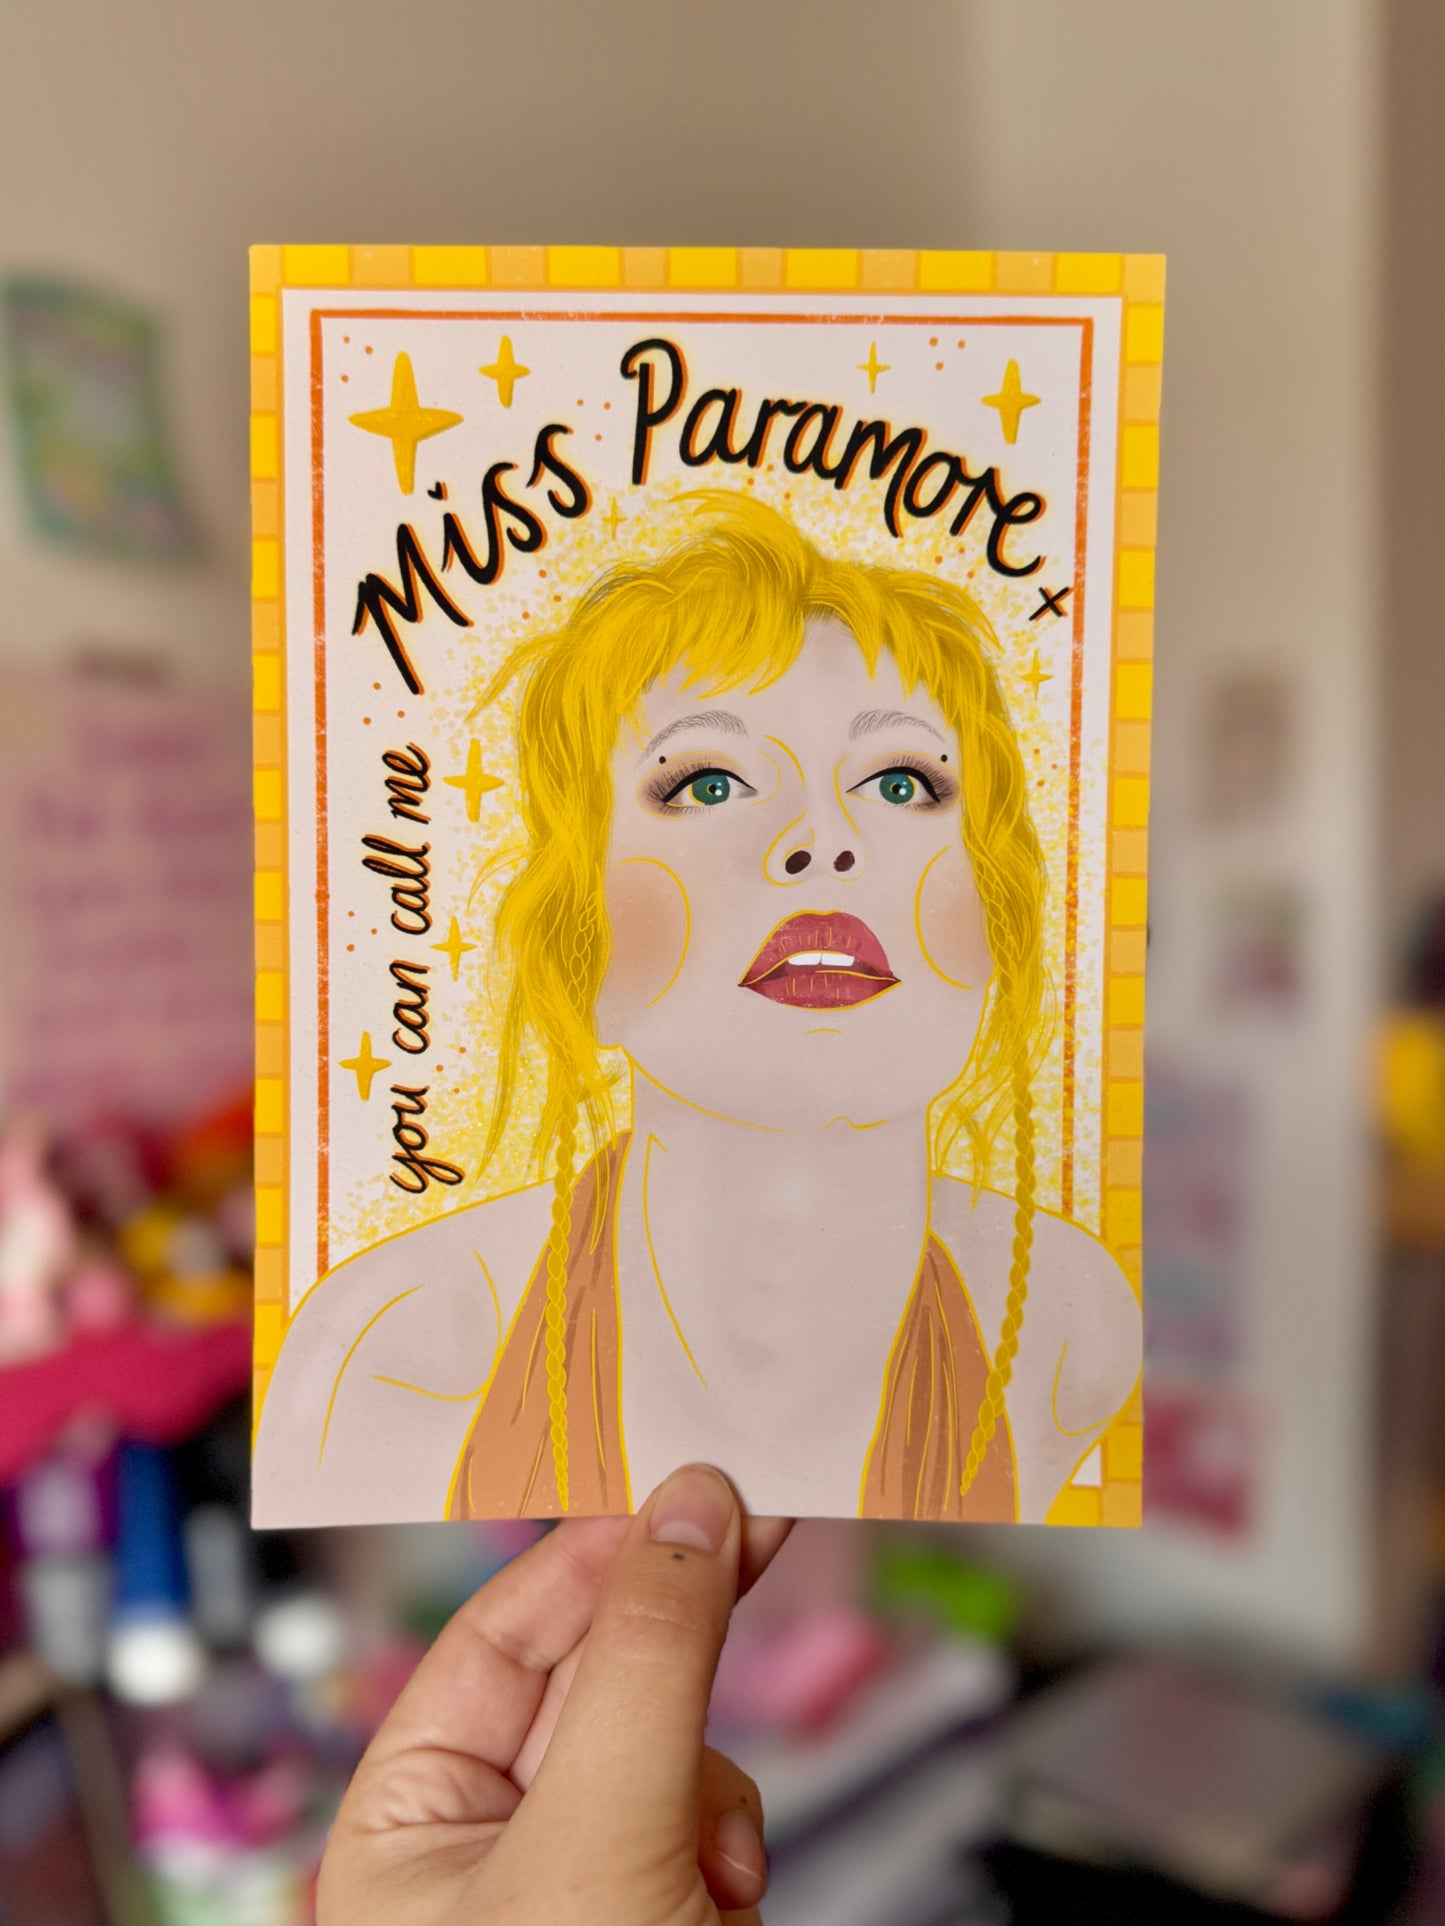 you can call me
Miss Paramore x